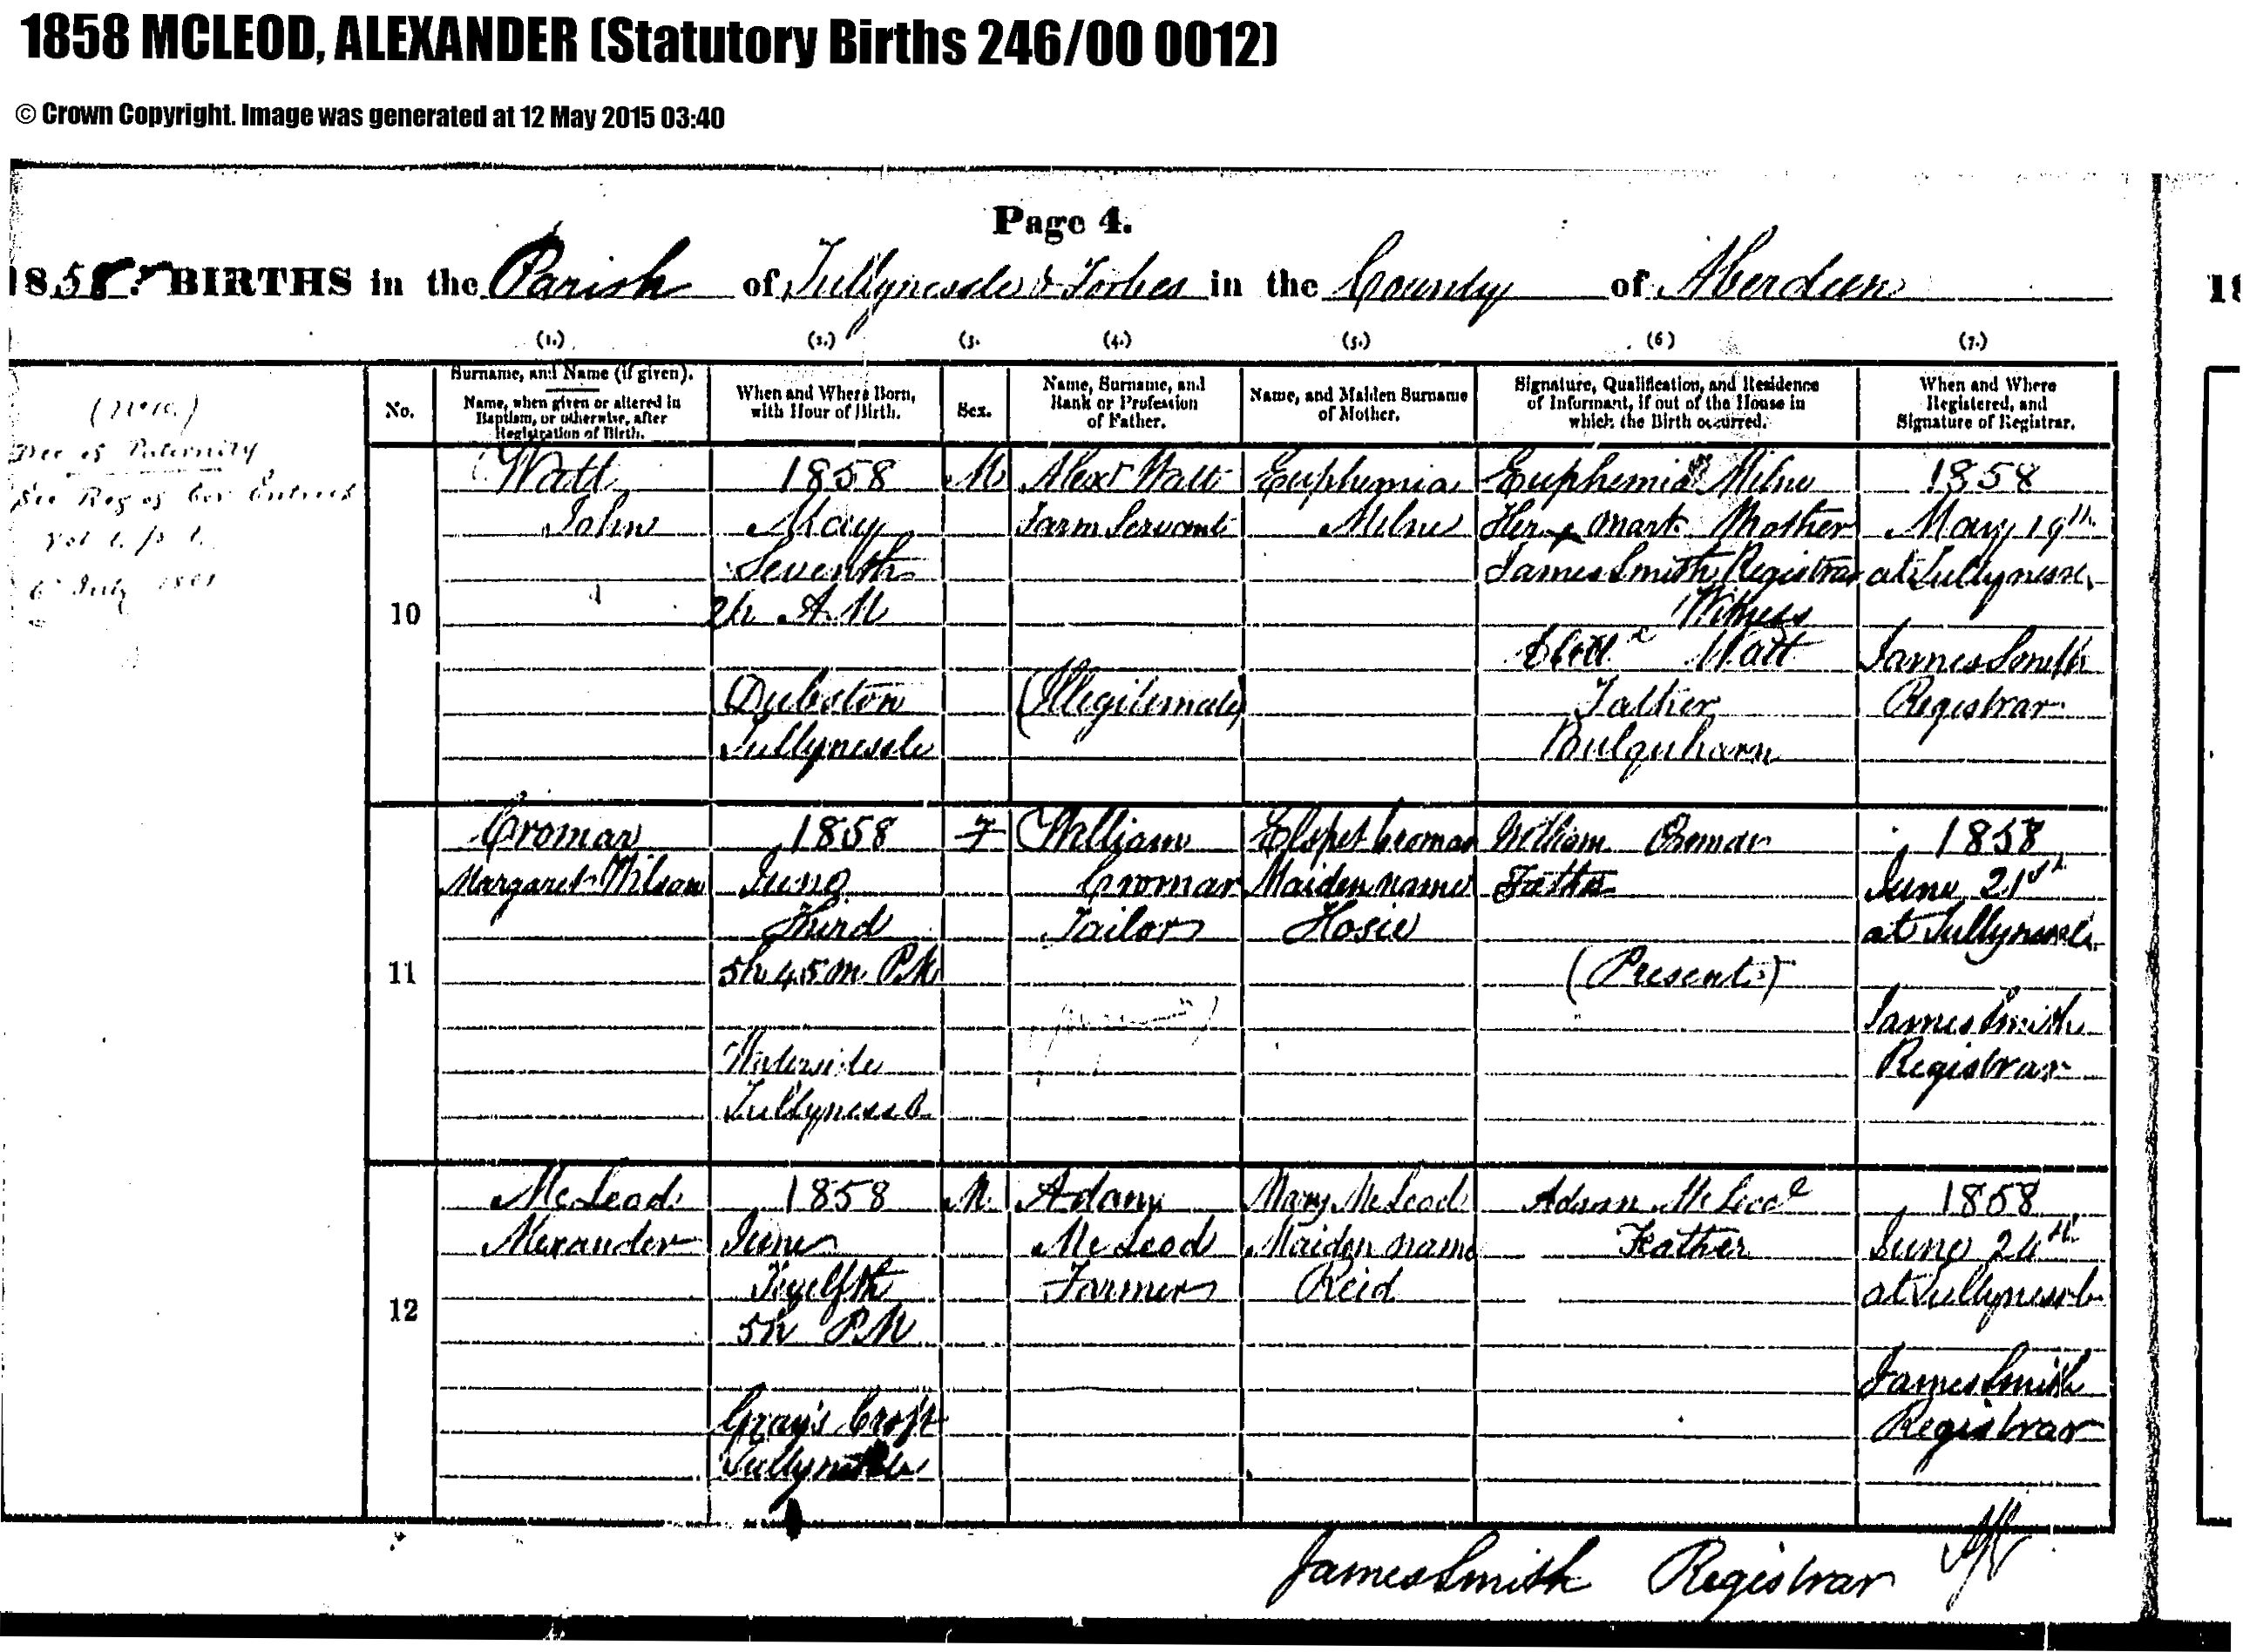 1858 MCLEOD, ALEXANDER (Statutory Births 246/00 0012)
© Crown Copyright. Image was generated at 12 May 2015 03:40
Page 4.
1858. BIRTHS in the Parish of Tullynessle & Forbes in the County of Aberdeen
(1.) (2.) (3. (4.) (5.) (6) (7.)
No.
Surname, and Name (if given).
Name, when given or altered in
Baptism, or otherwise, after
Registration of Birth.
When and Where Born,
with Hour of Birth.
Sex.
Name, Surname, and
Rank or Profession
of Father.
Name, and Maiden Surname
of Mother.
Signature, Qualification, and Residence
of Informant, if out of the House in
which the Birth occurred.
When and Where
Registered, and
Signature of Registrar.
Dec of Paternity
See Reg of Cor Entries
Vol 1. p 1.
6 July
10
Watt
John
1858
May
Seventh
2h A.M
Dubston
Tullynessle
M
Alexr Watt
Farm Servant
(Illegitimate)
Euphemia
Milne
Euphemia Milne
Her x mark Mother
James Smith Registrar
Witness
Watt
Father
Bulquharn
1858
May 19th
at Tullynessle
James Smith
Registrar
11
Cromar
Margaret Wilson
1858
June
Third
5h 45m P.M
Waterside
Tullynessle
F
William
Cromar
Tailor
Elspet Cromar
Maiden name
Hosie
William Cromar
Father
(Present)
1858
June 21st
at Tullynessle
James Smith
Registrar
12
McLeod
Alexander
1858
June
Twelfth
5h P.M
Gray's Croft
Tullynessle
M.
Adam
McLeod
Farmer
Mary McLeod
Maiden name
Reid
Adam McLeod
Father
1858
June 24th
at Tullynessle
James Smith
Registrar
James Smith Registrar